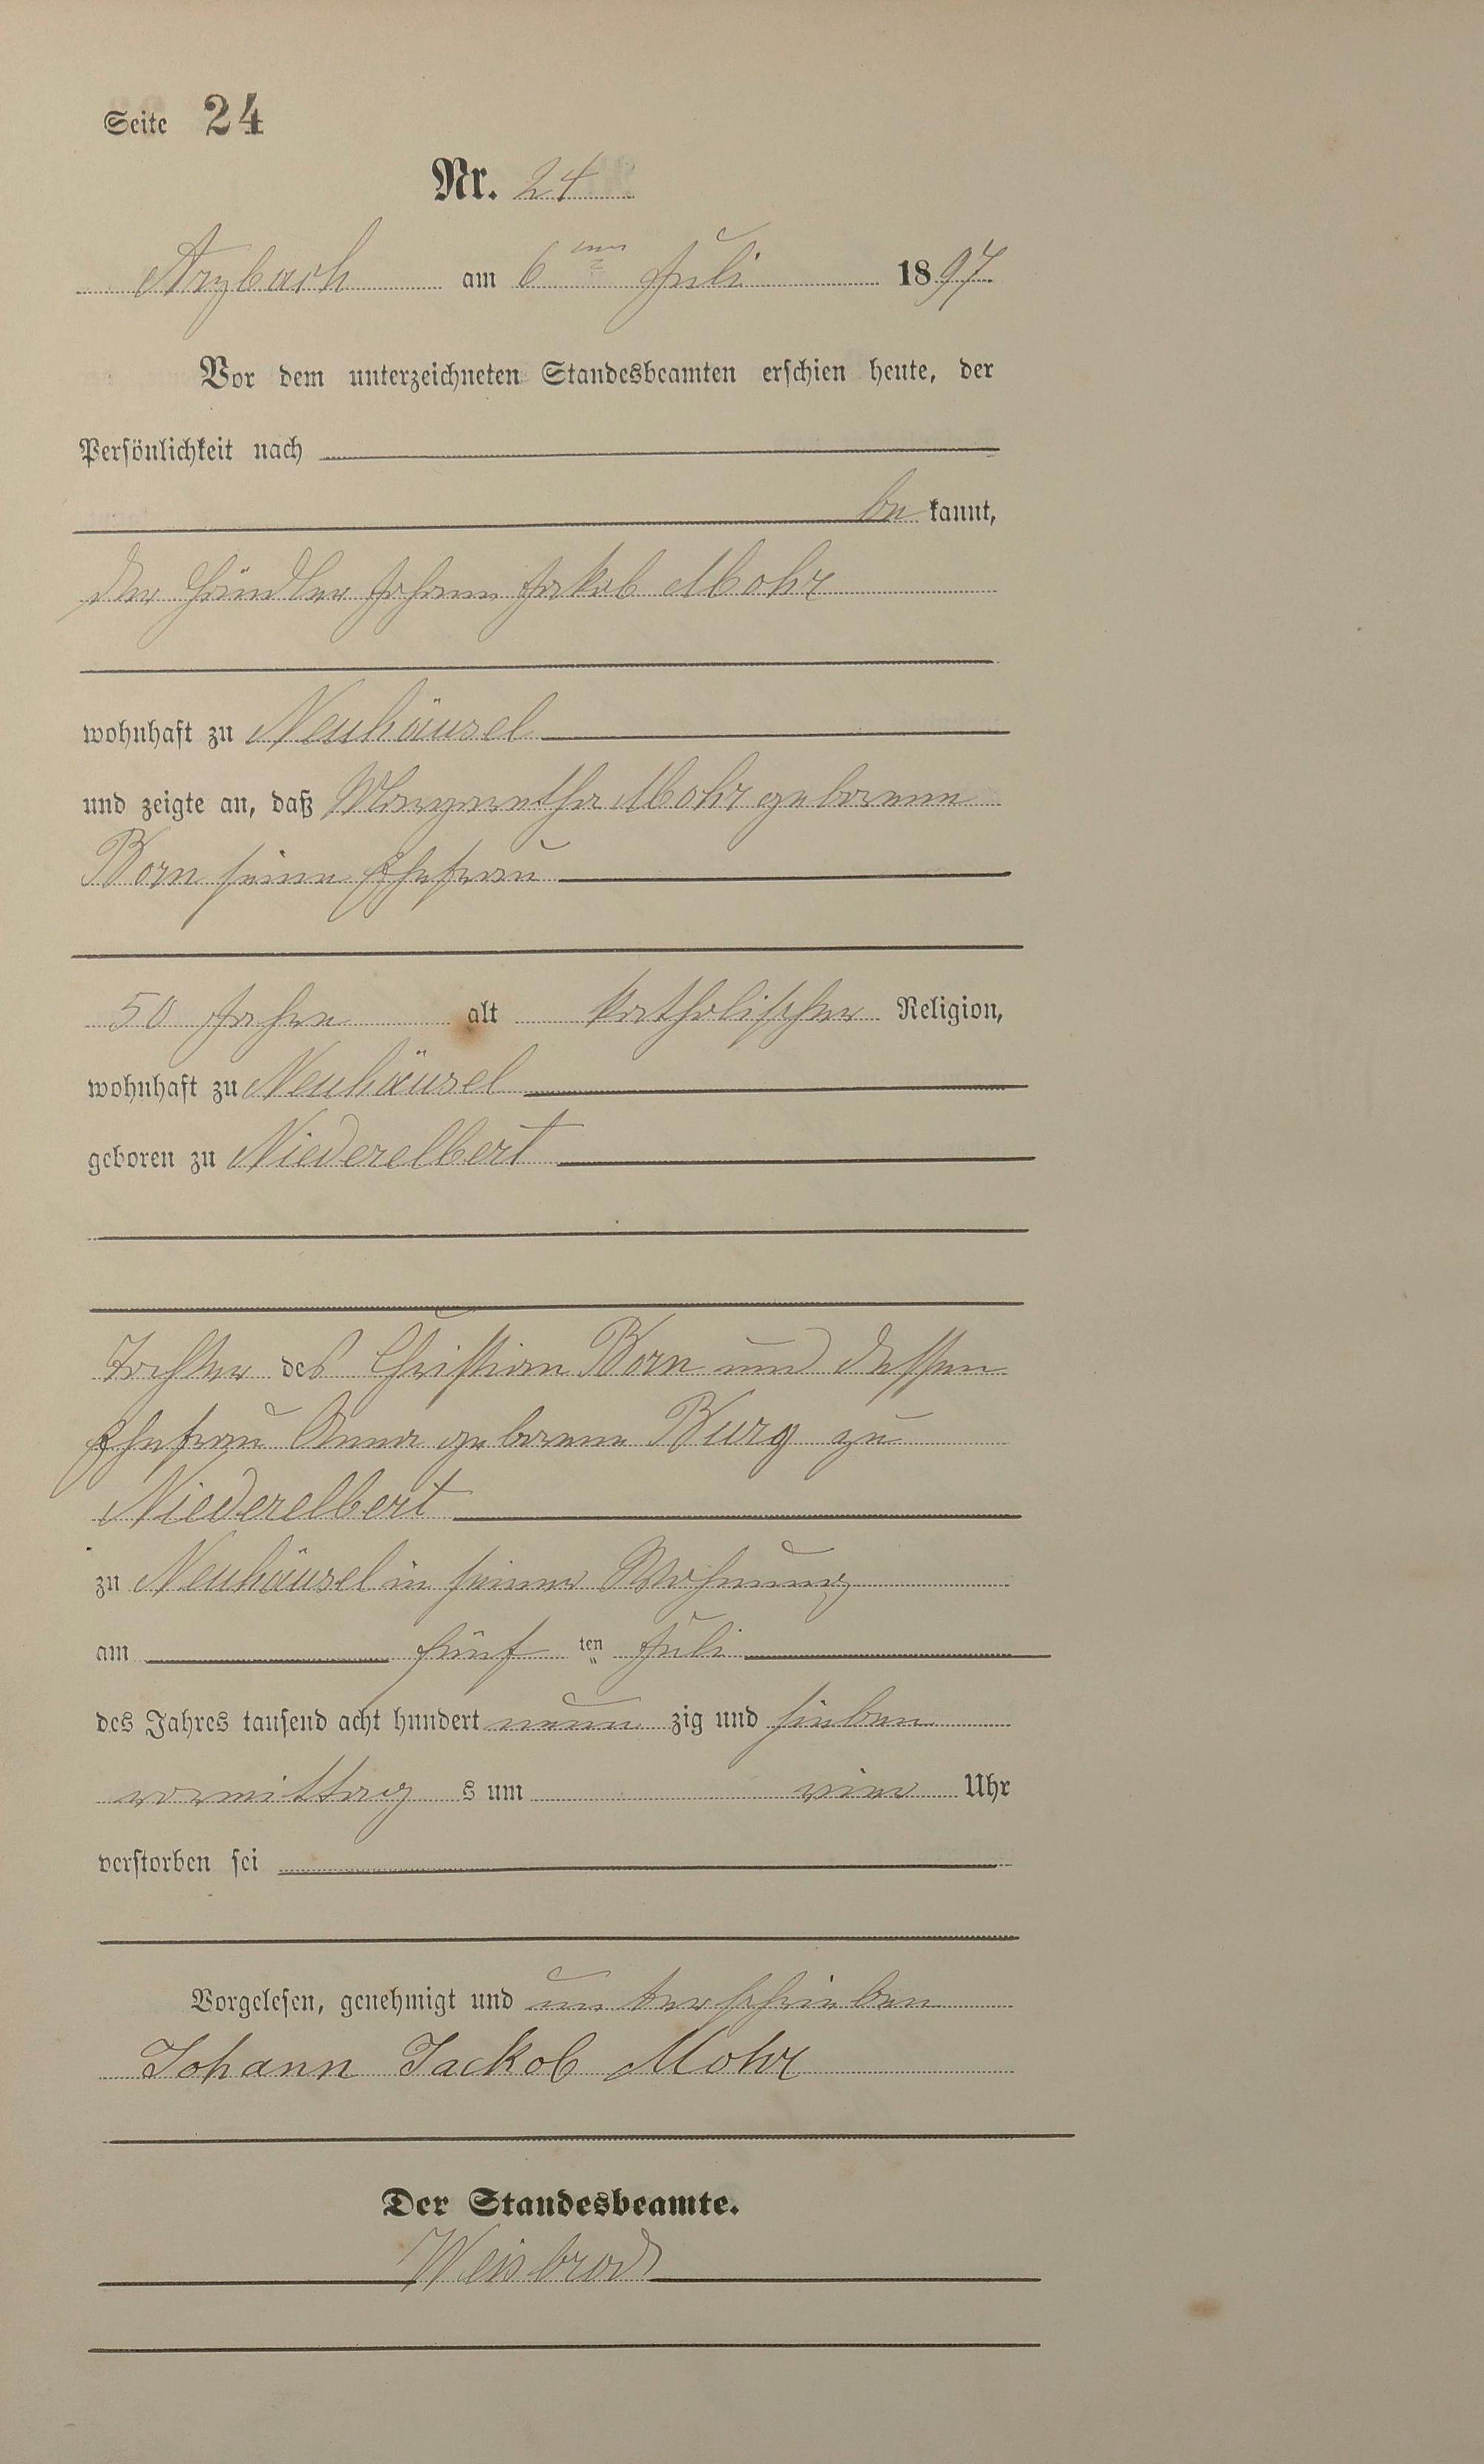 Seite 24
Nr. 24
Arzbach am 6ten Juli 1897
Vor dem unterzeichneten Standesbeamten erschien heute, der
Persönlichkeit nach
be kannt,
der Händler Johann Jakob Mohr
wohnhaft zu Neuhäusel
und zeigte an, daß Margaretha Mohr geborene
Born seine Ehefrau
50 Jahre alt katholischer Religion,
wohnhaft zu Neuhäusel
geboren zu Niederelbert
Tochter des Christian Born und dessen
Ehefrau Anna geborene Burg zu
Niederelbert
zu Neuhäusel in seiner Wohnung
am fünf ten Juli
des Jahres tausend acht hundert neun zig und sieben
vormittag s um vier Uhr
verstorben sei
Vorgelesen, genehmigt und unterschrieben
Johann Jackob Mohr
Der Standesbeamte.
Weisbrod